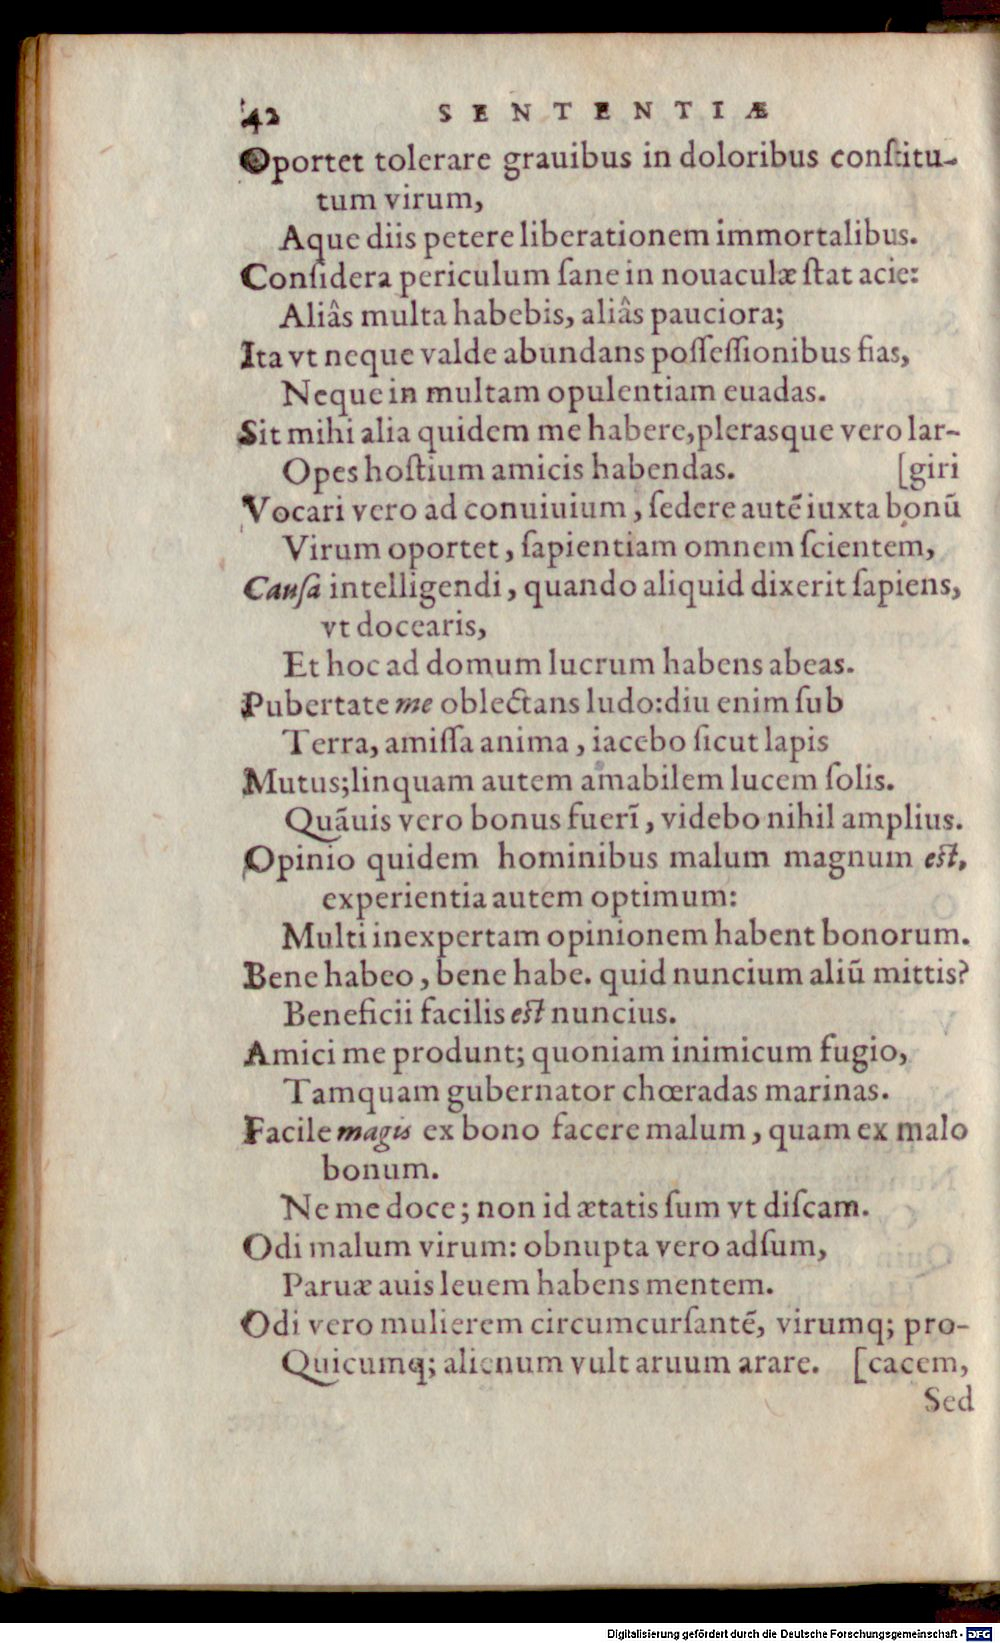 42 SENTENTIÆ
Oportet tolerare grauibus in doloribus conſtitu-
tum virum,
Aque diis petere liberationem immortalibus.
Conſidera periculum ſane in nouaculæ ſtat acie:
Aliâs multa habebis, aliâs pauciora;
Ita vt neque valde abundans poſſeſſionibus fias,
Neque in multam opulentiam euadas.
Sit mihi alia quidem me habere, plerasque vero lar-
Opes hoſtium amicis habendas. [giri
Vocari vero ad conuiuium, ſedere autē iuxta bonū
Virum oportet, ſapientiam omnem ſcientem,
Cauſa intelligendi, quando aliquid dixerit ſapiens,
vt docearis,
Et hoc ad domum lucrum habens abeas.
Pubertate me oblectans ludo: diu enim ſub
Terra, amiſſa anima, iacebo ſicut lapis
Mutus; linquam autem amabilem lucem ſolis.
Quāuis vero bonus fuerī, videbo nihil amplius.
Opinio quidem hominibus malum magnum eſt,
experientia autem optimum:
Multi inexpertam opinionem habent bonorum.
Bene habeo, bene habe. quid nuncium aliū mittis?
Beneficii facilis eſt nuncius.
Amici me produnt; quoniam inimicum fugio,
Tamquam gubernator chœradas marinas.
Facile magis ex bono facere malum, quam ex malo
bonum.
Ne me doce; non id ætatis ſum vt diſcam.
Odi malum virum: obnupta vero adſum,
Paruæ auis leuem habens mentem.
Odi vero mulierem circumcurſantē, virumq; pro-
Quicumq; alienum vult aruum arare. [cacem,
Sed
Digitalisierung gefördert durch die Deutsche Forschungsgemeinschaft - DFG